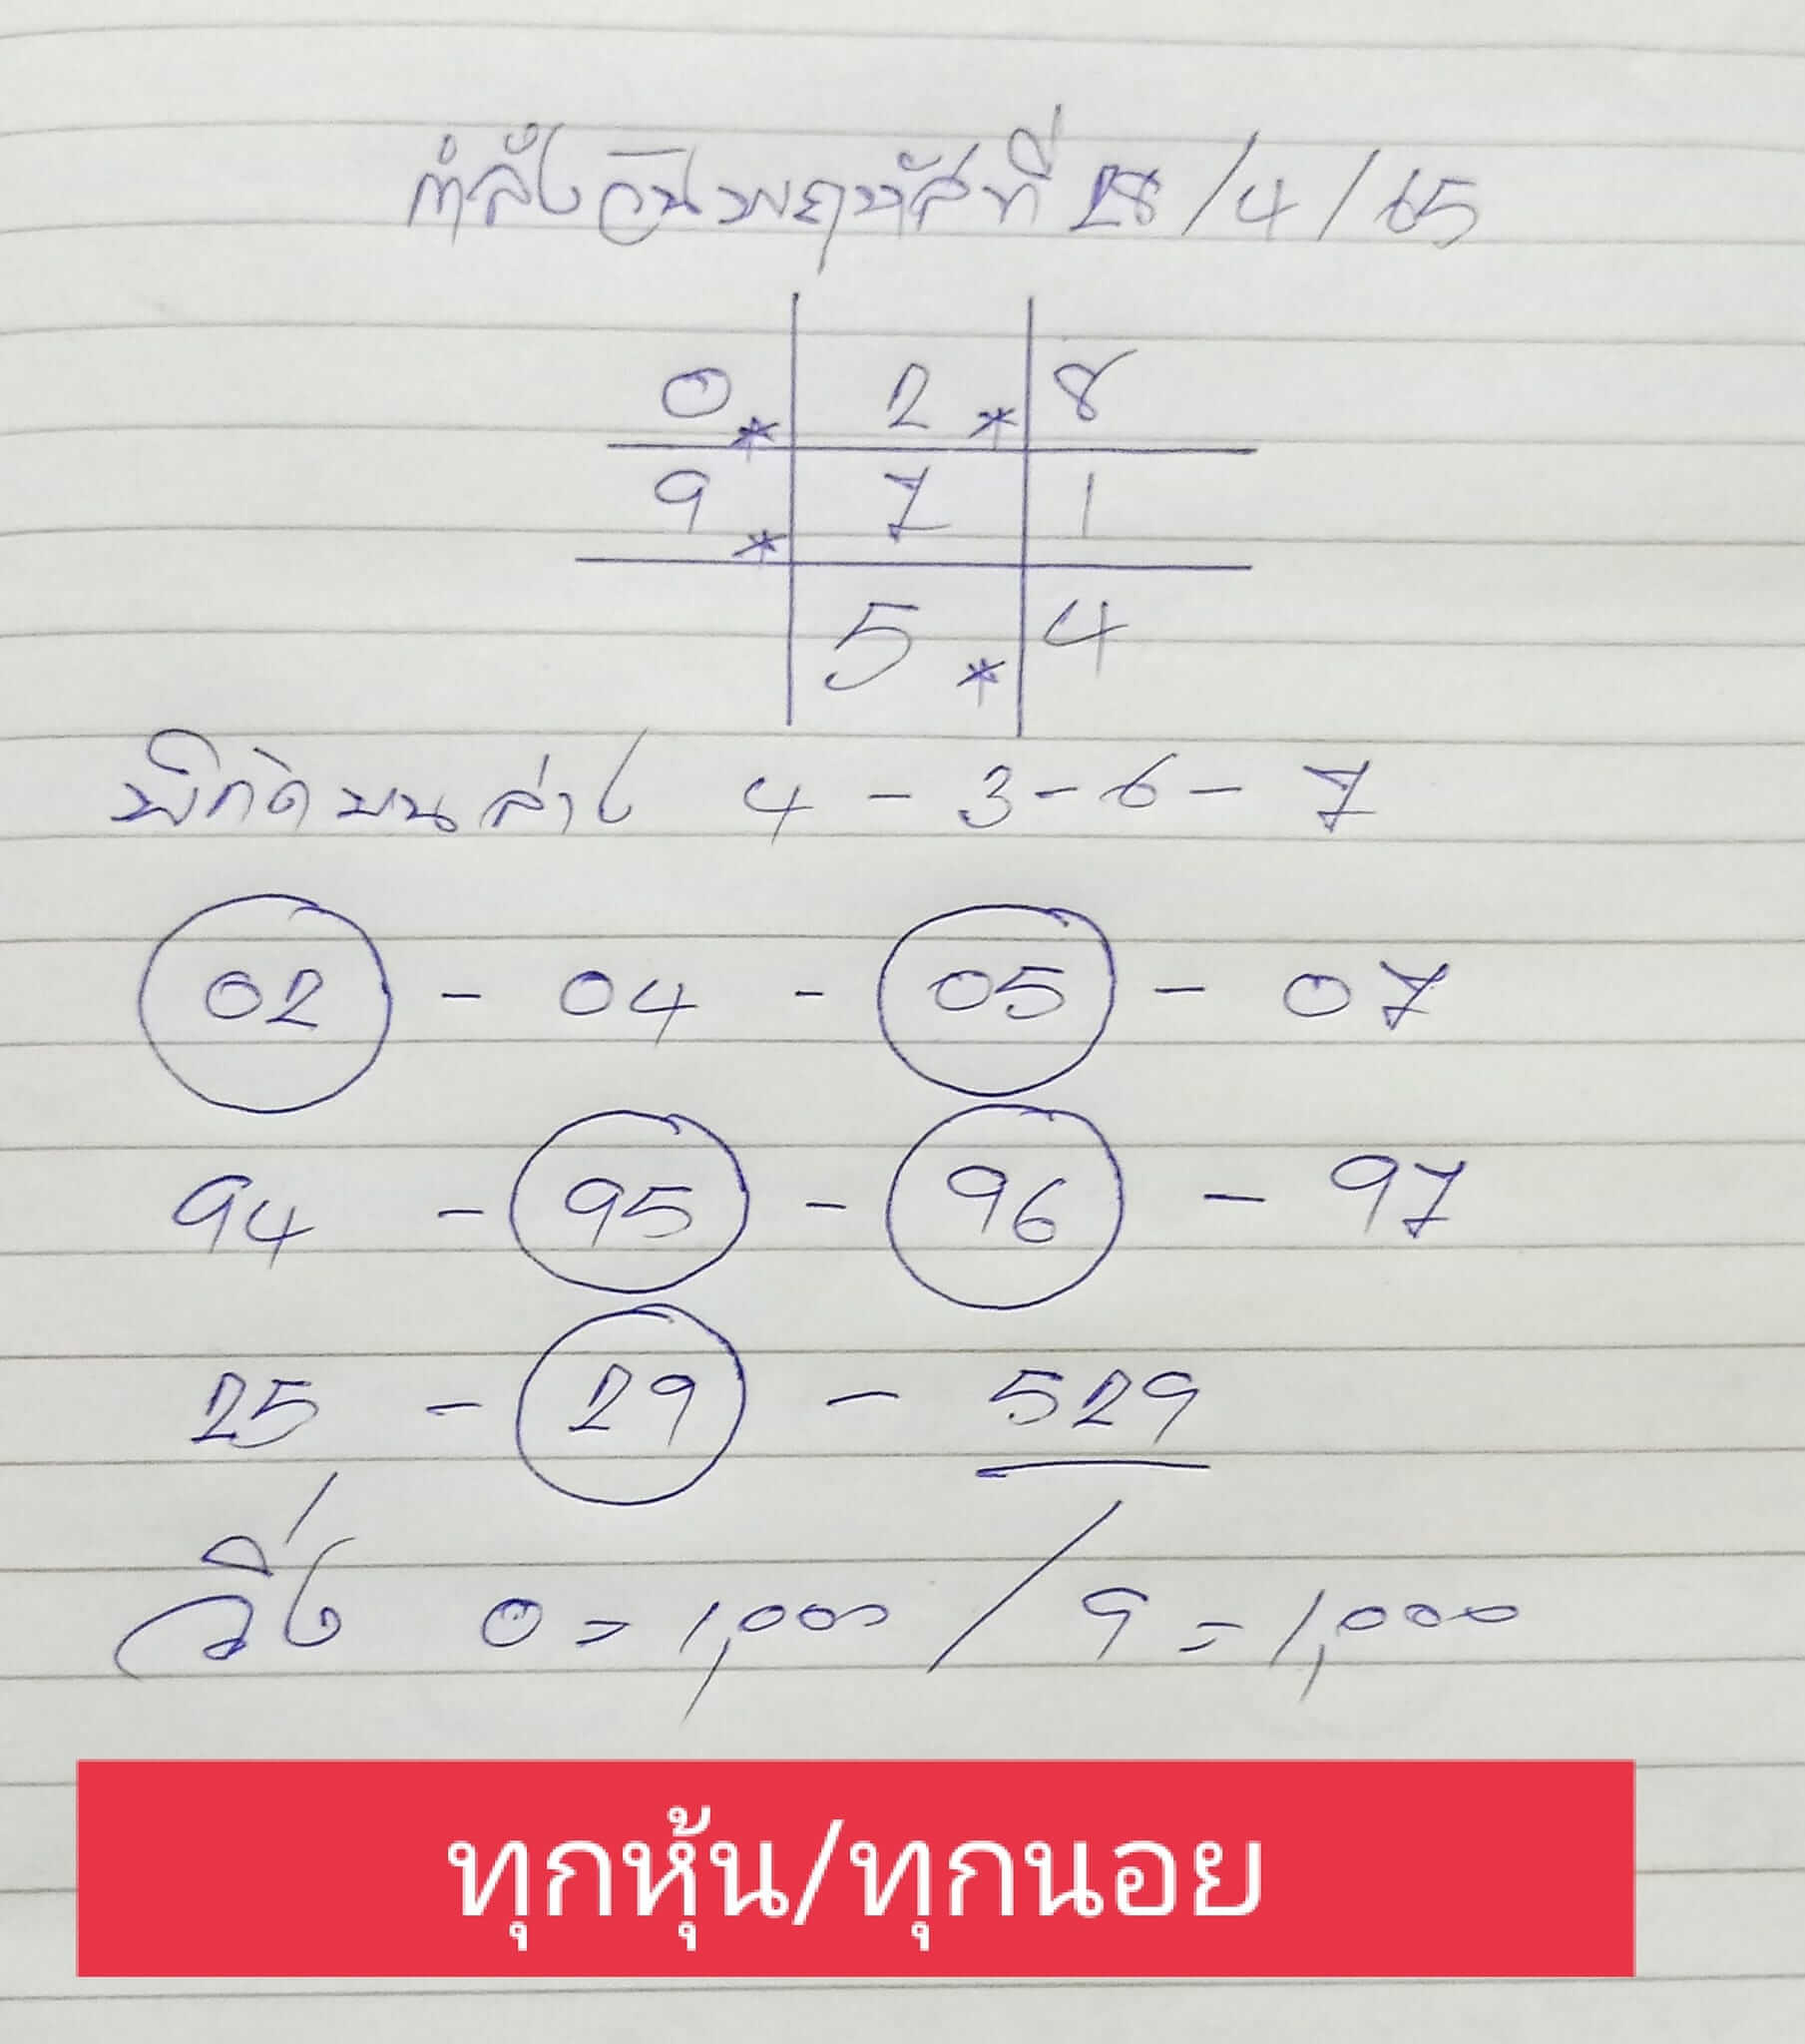 กำลังวันพฤหัสที่ 28/4/65
0* 2* 8
9* 7 1
5* 4
พิกัดบนล่าง 4 - 3 - 6 - 7
02 - 04 - 05 - 07
94 - 95 - 96 - 97
25 - 29 - 529
วิ่ง 0 = 1,000 / 9 = 1,000
ทุกหุ้น/ทุกนอย